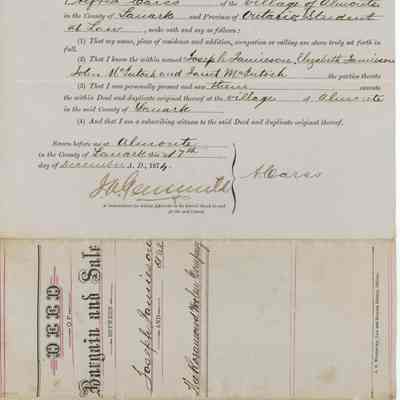 I, Alfred Carss of the Village of Almonte
in the County of Lanark and Province of Ontario, Student
at Law, make oath and say as follows:
(1) That my name, place of residence and addition, occupation or calling are above truly set forth in
full.
(2) That I know the within named Joseph Jamieson, Elizabeth Jamieson
John McIntosh and Janet McIntosh the parties thereto
(3) That I was personally present and saw them execute
the within Deed and duplicate original thereof at the Village of Almonte
in the said County of Lanark
(4) And that I am a subscribing witness to the said Deed and duplicate original thereof.
Sworn before me at Almonte
in the County of Lanark this 7th
day of December A. D., 1874.
A Carss
DEED
OF
Bargain and Sale
BETWEEN
Joseph Jamieson
et al
AND
The Rosamond Woolen Company